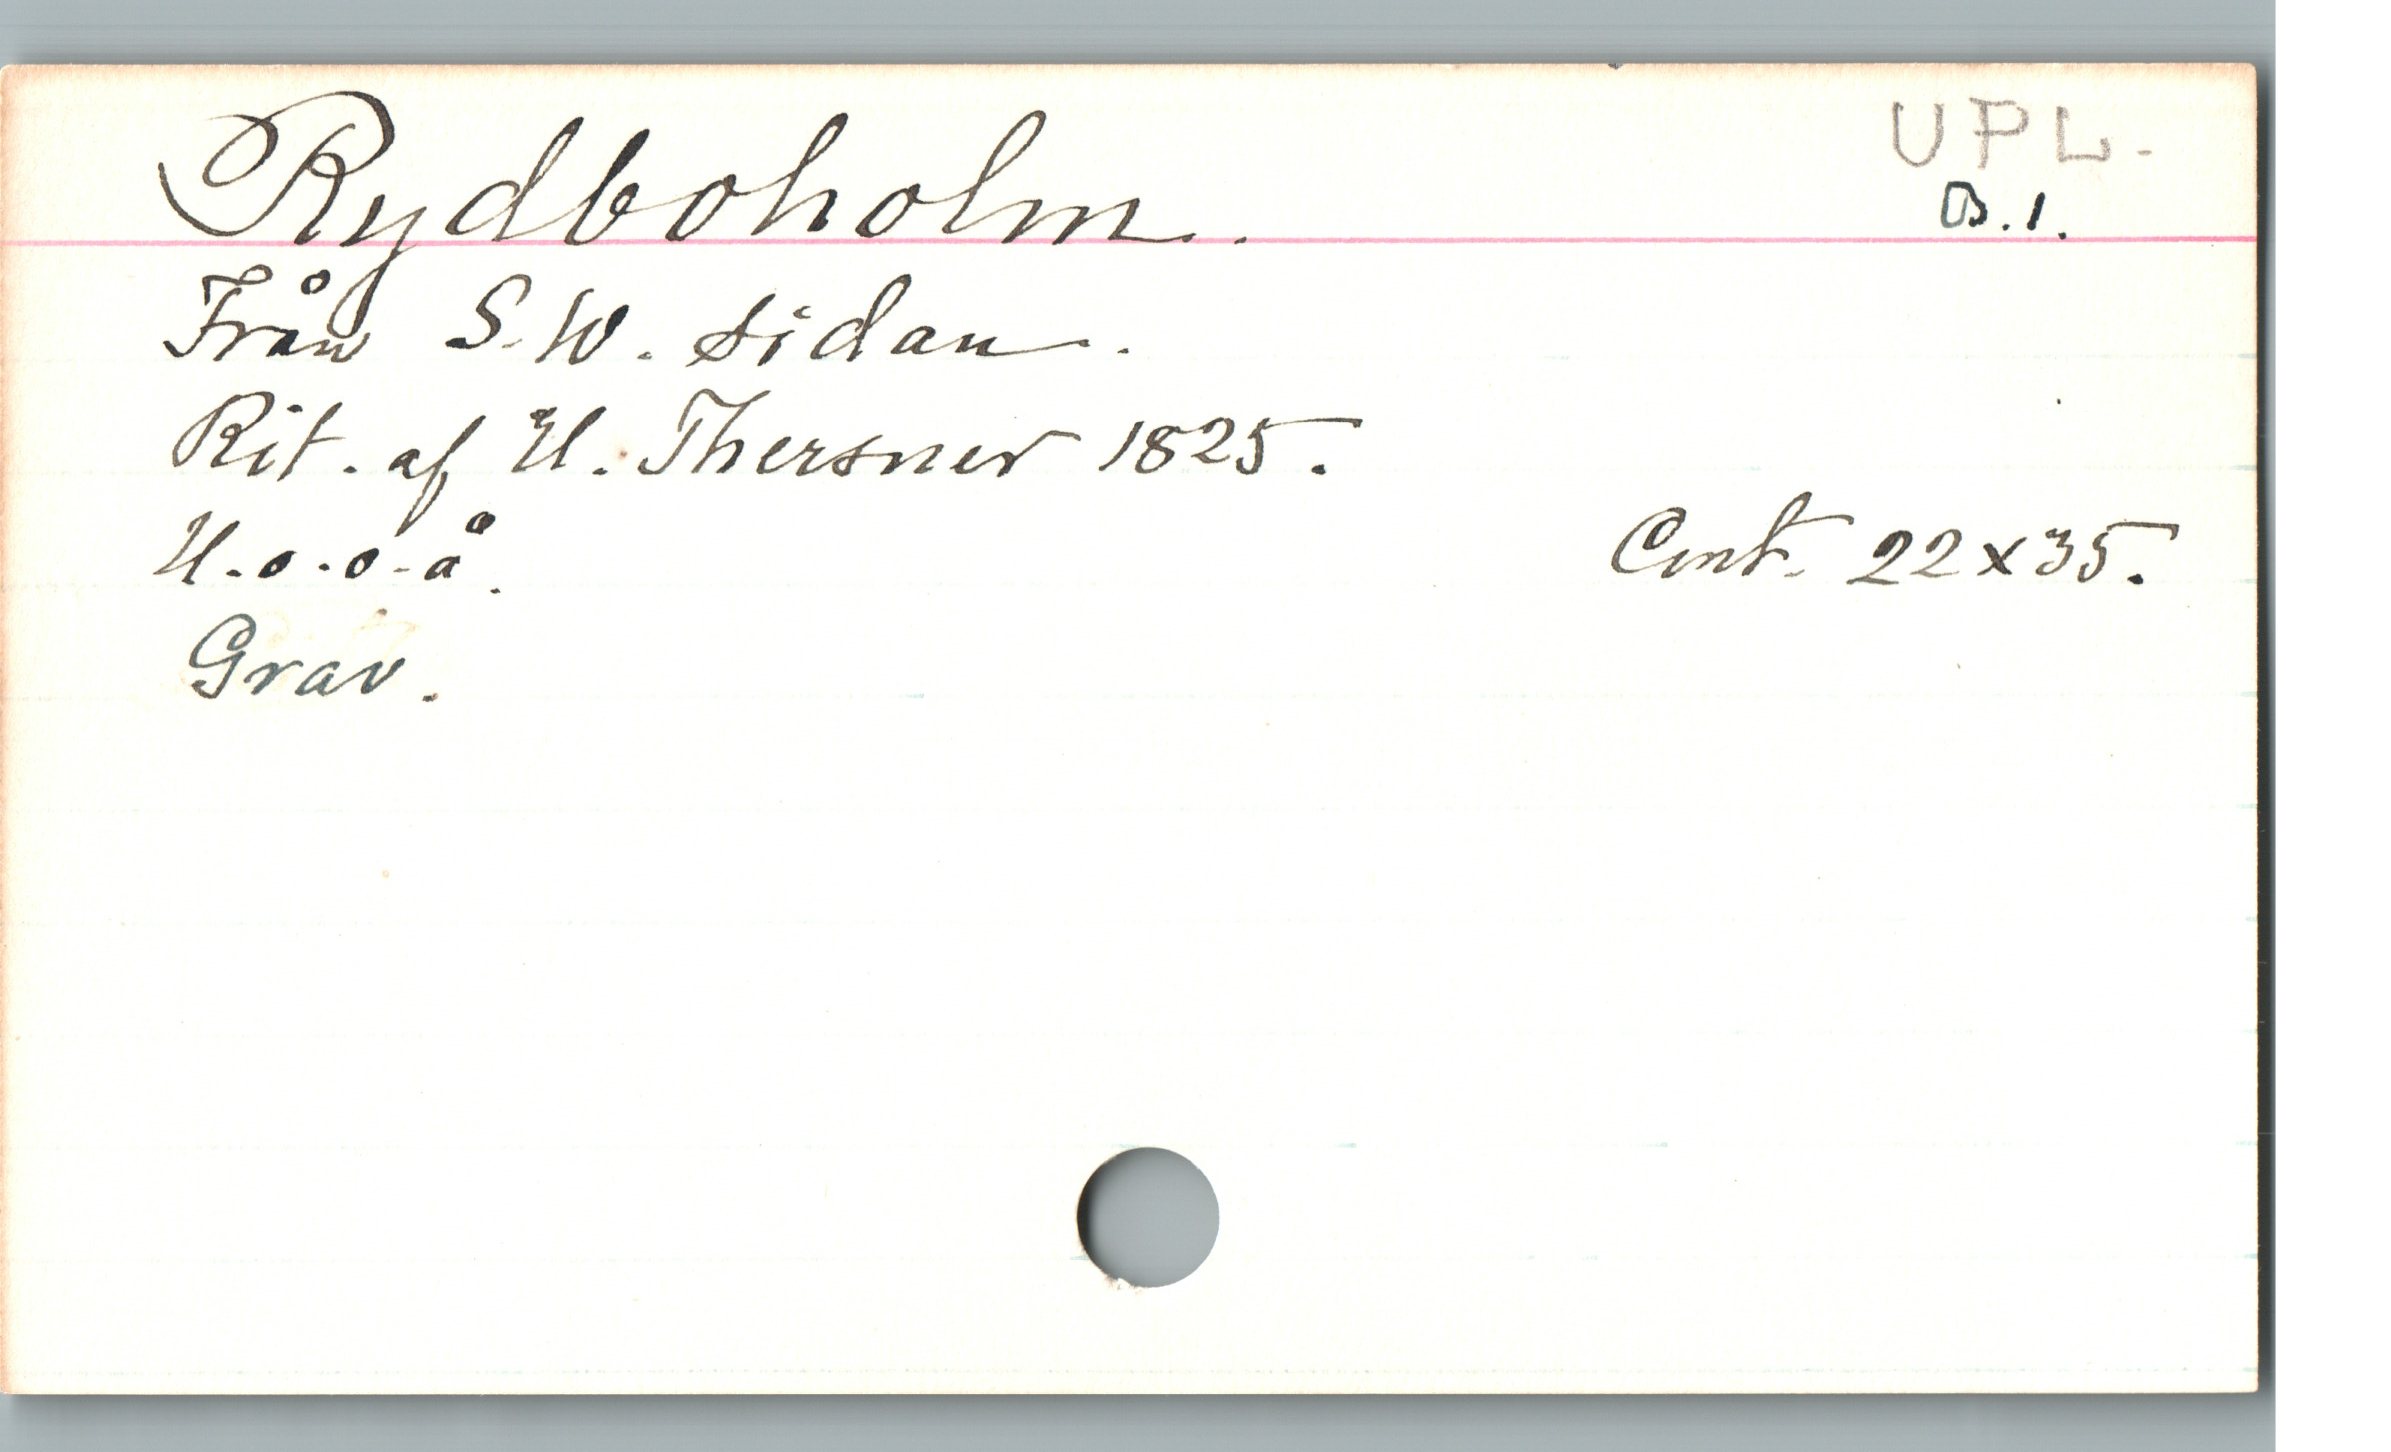 Rydboholm.
UPL.
B.1.
Från S.W. sidan.
Rit. af U. Thersner 1825.
U.o.o.å.
Cent. 22x35.
Grav.